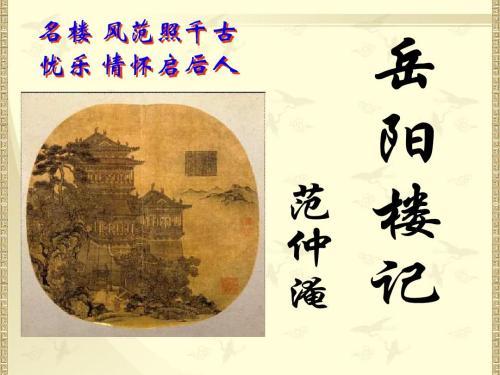 名楼 风范照千古
忧乐 情怀启后人
岳阳楼记
范仲淹